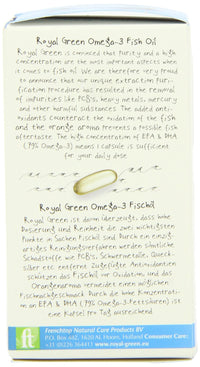 Royal Green Omega-3 Fish Oil
Royal Green is convinced that purity and a high
concentration are the most important aspects when
it comes to fish oil. We are therefore very proud
to announce that our unique extraction Puri-
fication procedure has resulted in the removal
of impurities like PCB's, heavy metals, mercury
and other harmful substances. The added anti-
oxidants counteract the oxidation of the fish oil
and the orange aroma prevents a possible fish
aftertaste. The high concentration of EPA & DHA
(79% Omega-3) means 1 capsule is sufficient
for your daily dose
Royal Green Omega-3 Fischöl
Royal Green ist davon überzeugt, dass hohe
Dosierung und Reinheit die zwei wichtigsten
Punkte in Sachen Fischöl sind. Durch ein einzig-
artiges Reinigungsverfahren werden sämtliche
Schadstoffe wie PCB's, Schwermetalle, Queck-
silber etc. entfernt. Zugefügte Antioxidantien
schützen das Fischöl vor Oxidation, und das
Orangenaroma vermeidet einen möglichen
Fischnachgeschmack. Durch die hohe Konzentrati-
on an EPA & DHA (79% Omega-3-Fettsäuren) ist
eine Kapsel pro Tag ausreichend
ft
Frenchtop Natural Care Products BV
P.O. Box 442, 1620 AL Hoorn, Holland Consumer Care:
+31 (0)226 364411 www.royal-green.eu